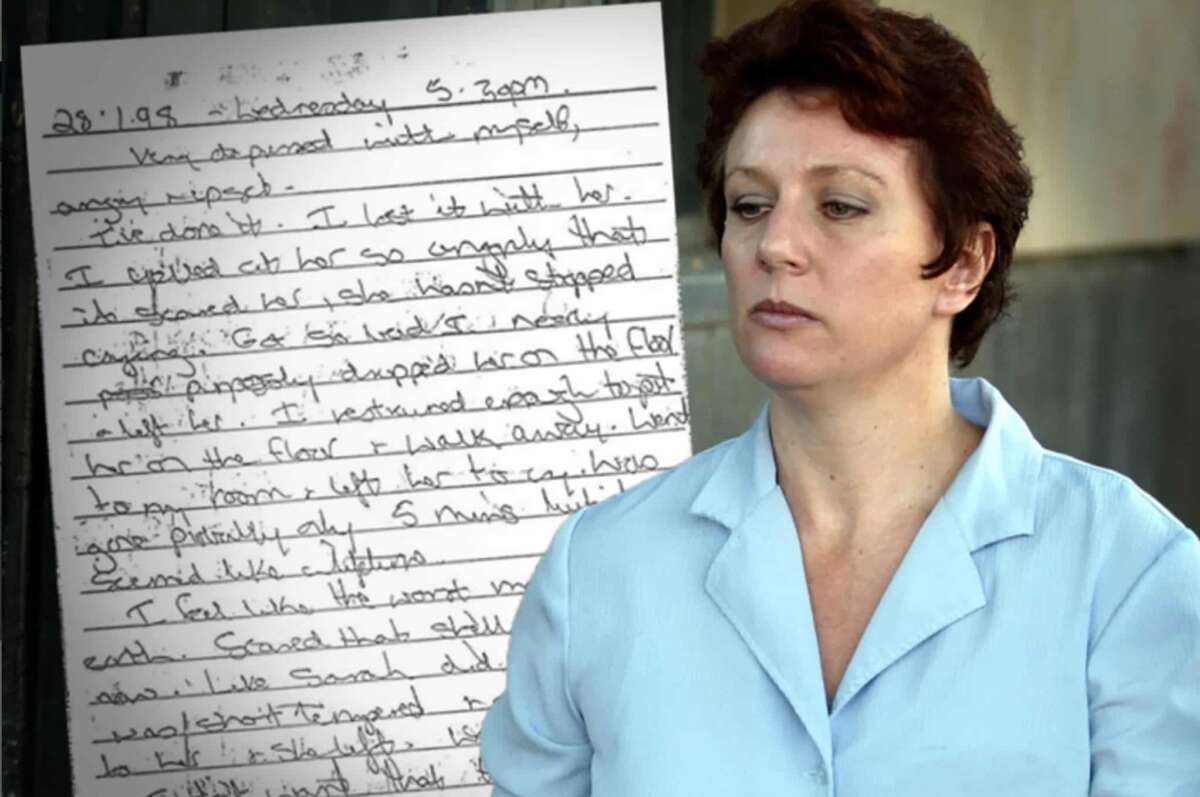 28.1.98 - Wednesday 5.30pm.
Very depressed with myself,
angry & upset.
I've done it. I lost it with her.
I yelled at her so angrily that
it scared her, she hasn't stopped
crying. Got so bad I nearly
purposely dropped her on the floor
& left her. I restrained enough to put
her on the floor & walk away. Went
to my room & left her to cry. Was
gone probably only 5 mins but it
seemed like a lifetime.
I feel like the worst m
earth. Scared that she'll
now. Like Sarah did.
was short tempered &
to her & she left.
want that t